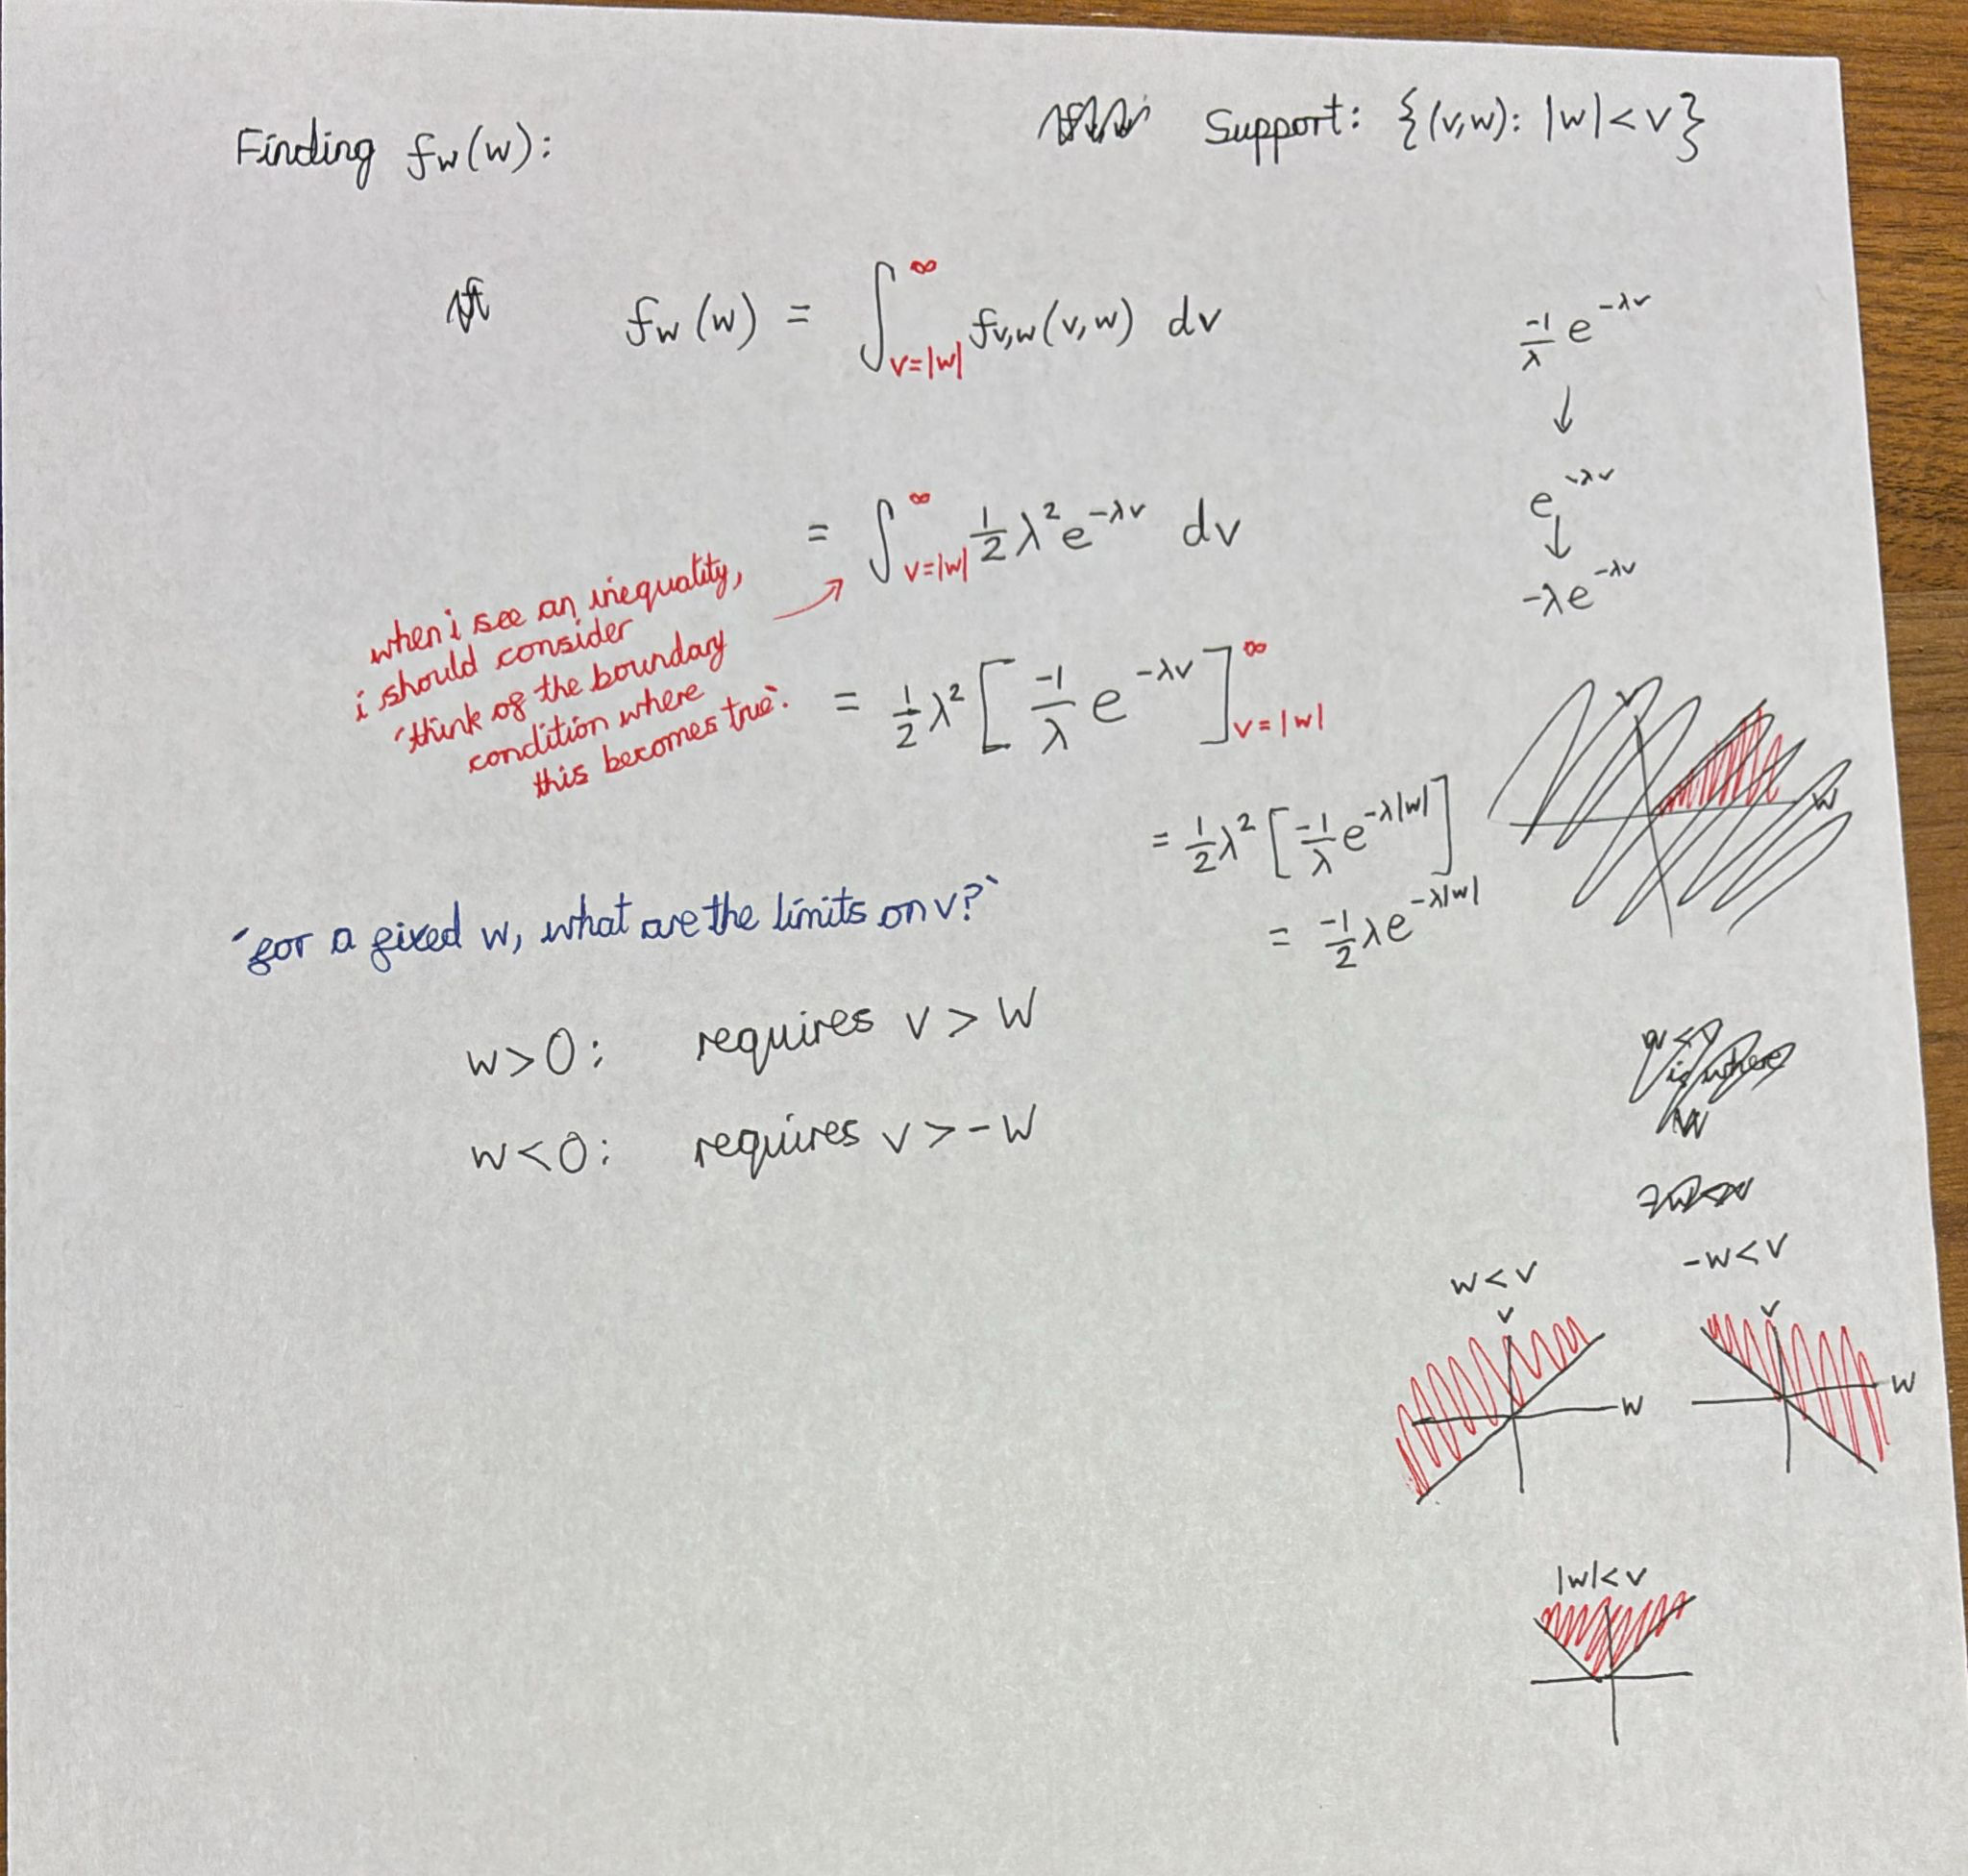 Finding fw(w):
Support: {(v,w): |w|<v}
fw(w) = ∫_{v=|w|}^{∞} fv,w(v,w) dv
= ∫_{v=|w|}^{∞} 1/2 λ² e^{-λv} dv
when i see an inequality,
i should consider
'think of the boundary
condition where
this becomes true'.
= 1/2 λ² [ -1/λ e^{-λv} ]_{v=|w|}^{∞}
= 1/2 λ² [ -1/λ e^{-λ|w|} ]
= -1/2 λe^{-λ|w|}
-1/λ e^{-λv}
↓
e^{-λv}
↓
-λe^{-λv}
v
w
'for a fixed w, what are the limits on v?'
w>0: requires v>w
w<0: requires v>-w
is where
w<v
v
w
-w<v
v
w
|w|<v